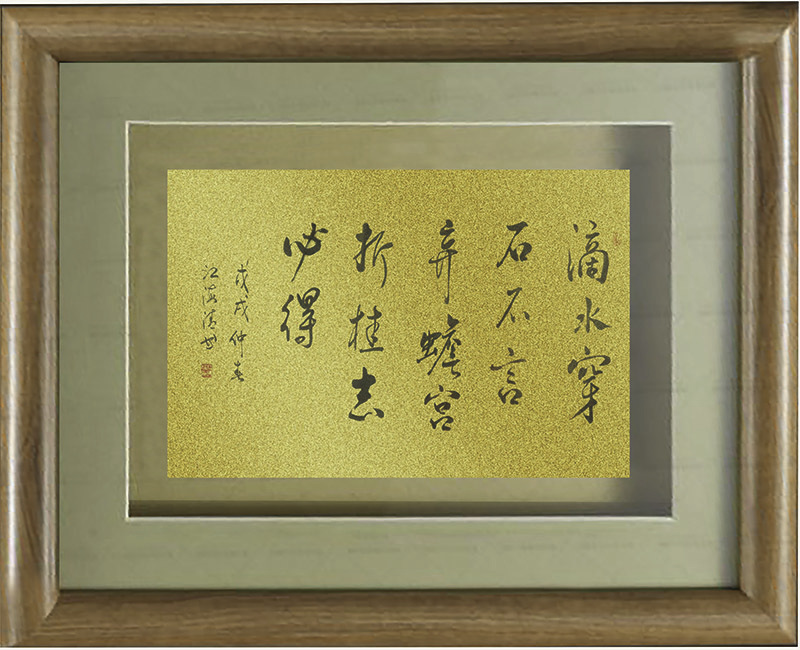 滴水穿
石不言
弃蟾宫
折桂志
必得
戊戌仲春
江海书